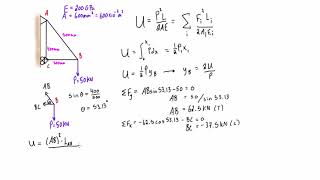 E = 200GPa
A = 600mm² = 600x10⁻⁶ m²
A
B
C
500mm
P=50KN
AB
BC
53.13
B
P=50KN
sinθ = 400/500
θ = 53.13°
U = (AB)² · L_AB
U = P²L/2AE = Σ F_i² L_i / 2A_i E_i
U = ∫₀^{x₁} Pdx = 1/2 P₁x₁
U = 1/2 P y_B → y_B = 2U/P
ΣF_y = ABsin53.13 - 50 = 0
AB = 50/sin53.13
AB = 62.5KN (T)
ΣF_x = -62.5cos53.13 - BC = 0
BC = -37.5KN (C)